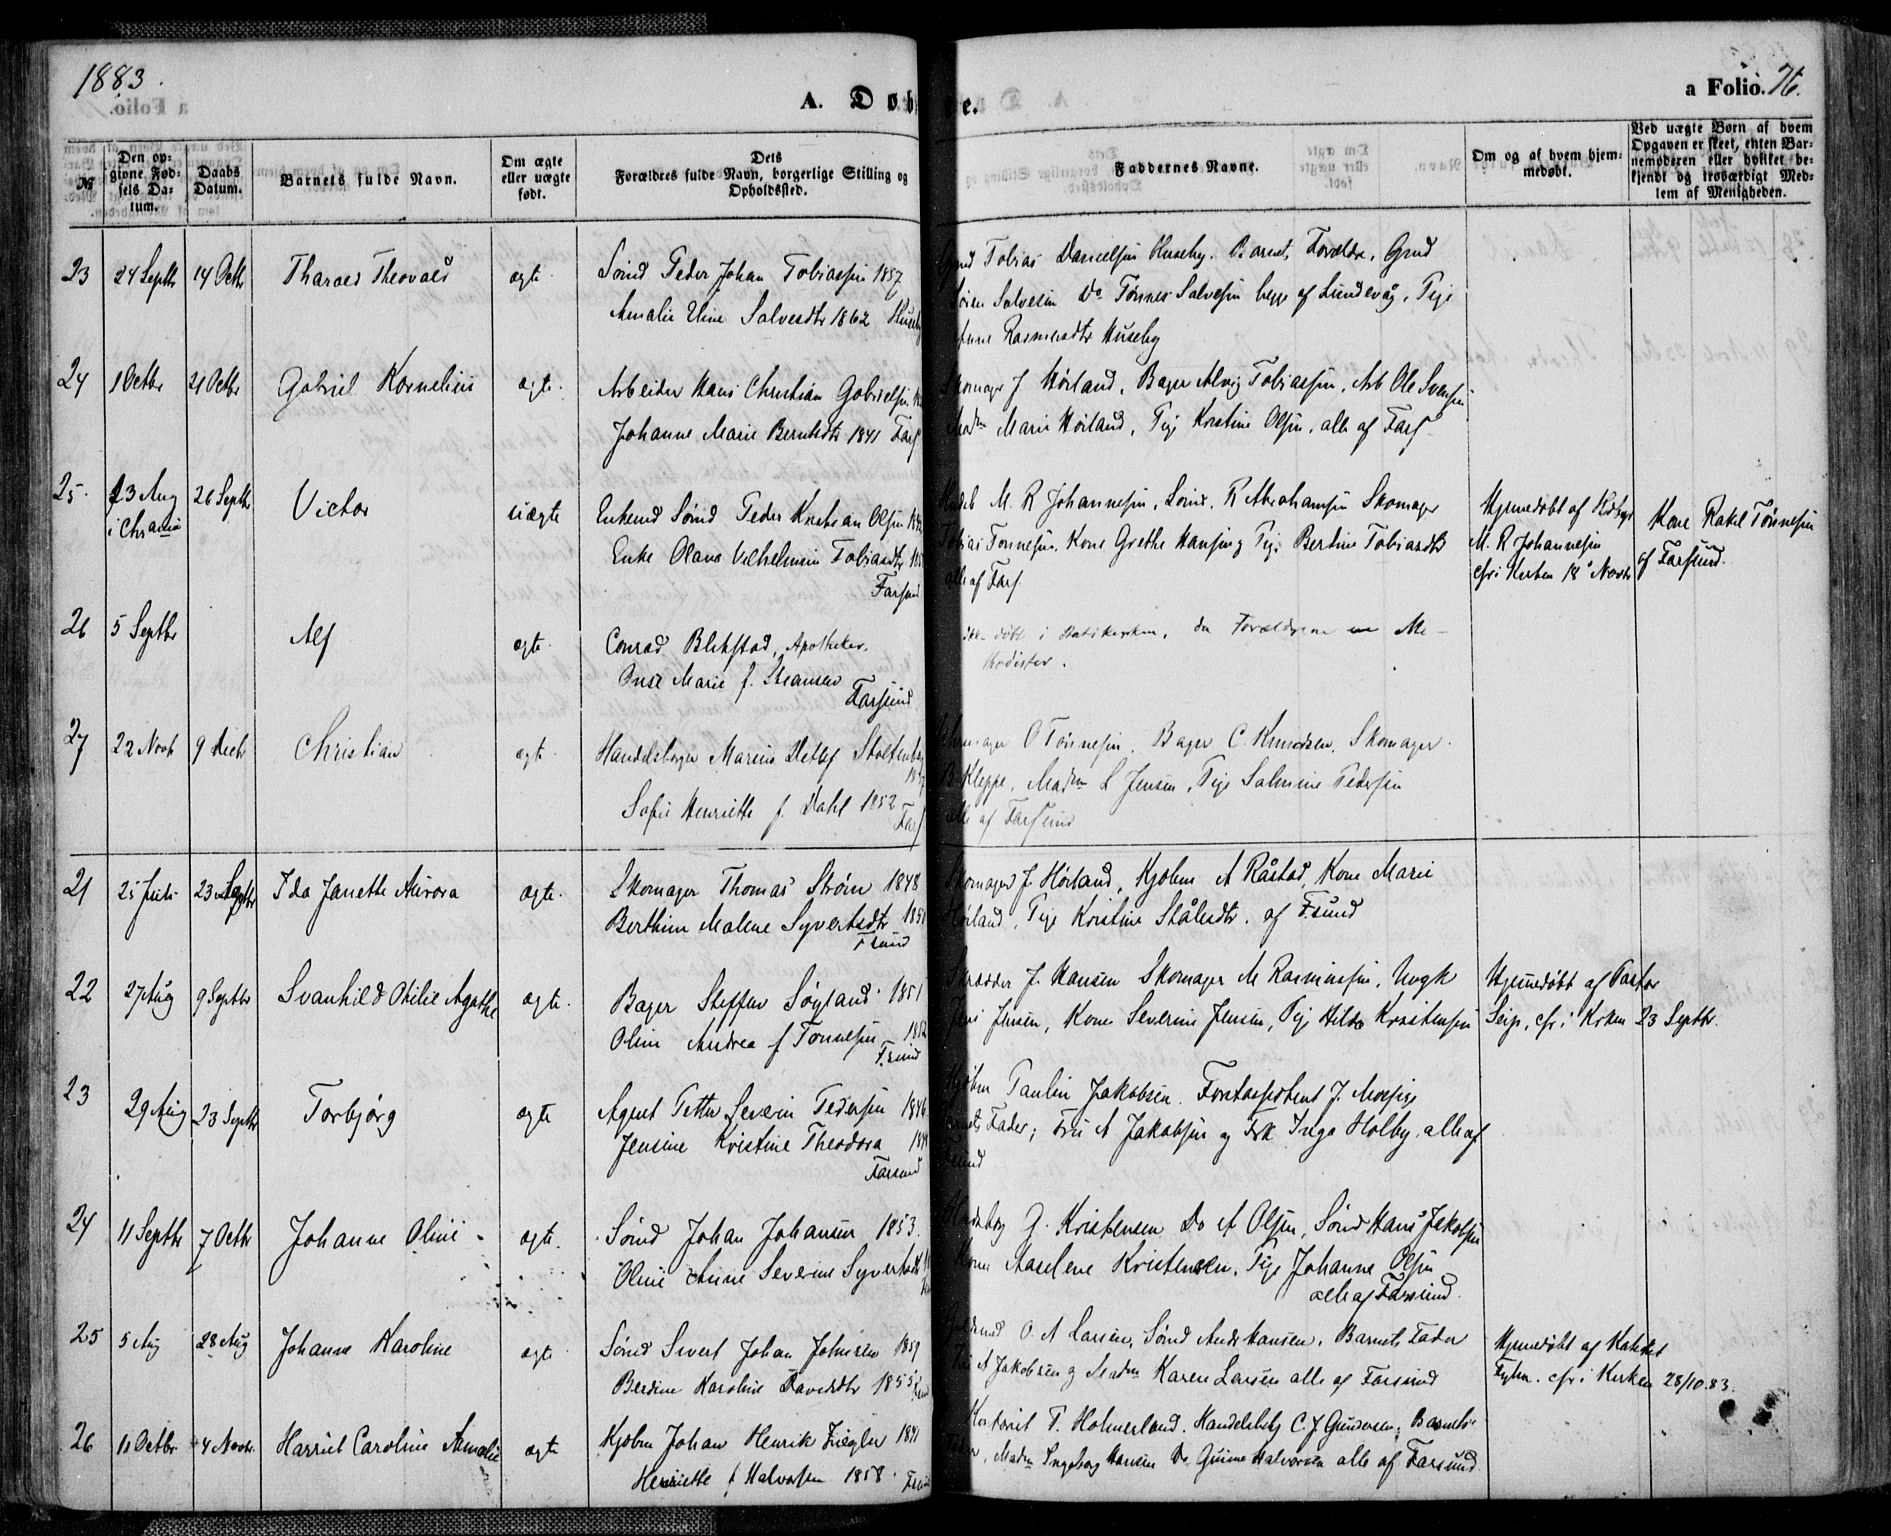 1883.
A. Døbte.
a Folio. 76.
№
Den opgivne Fødsels Datum.
Daabs Datum.
Barnets fulde Navn.
Om ægte eller uægte født.
Forældres fulde Navn, borgerlige Stilling og Opholdssted.
Faddernes Navne.
Om og af hvem hjemmedøbt.
Ved uægte Børn af hvem Opgaven er skeet, enten Barnemoderen eller hvilket bekjendt og troværdigt Medlem af Menigheden.
23 24 Septbr 14 Octbr Theovald ægte Sømd Peder Johan Tobiassen 1857
Amalie Eline Salvesdtr 1862
Tobias Danielsen Huseby. Barnets Forældre. Gmd
Søren Salvesen Do Tønnes Salvesen begge af Lundevåg. Pige
Rasmusdtr Huseby
24 1 Octbr 21 Octbr Gabriel Kornelius ægte. Arbeider Hans Christian Gabrielsen
Johanne Marie Berntsdtr 1841 Fars
Skomager J Hørland, Bager Alvig Tobiassen, Arb Ole Svensen
Madm Marie Hørland, Pig Kristine Olsen, alle af Fars
25. 23 Aug i Chrania 26 Septbr Victor uægte Enkemd Sømd Peder Kristian Olsen
Enke Olava Vilhelmine Tobiasdtr
Farsund
M. R Johannesen, Sømd. R Abrahamsen Skomager
Tobias Tønnesen, Kone Grethe Hansen og Pige Bertine Tobiasdtr
alle af Fars.
Hjemmedøbt af
M. R Johannesen
cfr i Kirken 18 Novbr
Kone Rakel Tønnesen
af Farsund.
26 5 Septbr Alf ægte. Conrad Blekstad, Apotheker.
Marie f.
Farsund
døbt i Statskirken, da Forældrene er Me-
thodister.
27 22 Novbr 9 Decbr Christian ægte Handelsborger Marius Detlef Stoltenberg
Sofie Henriette f. Dahl 1852
Fars
O Tønnesen. Bager C. Knudsen, Skomager
Kleppe, Madm S Jensen, Pige Salmine Pedersen
alle af Farsund
21 25 Juli 23 Septbr Ida Janette Aurora ægte. Skomager Thomas Strøm 1848
Berthine Malene Syvertsdtr
Fsund
Skomager J. Hørland, Kjøbm A Råstad, Kone Marie
Hørland, Pige Kristine Ståhlsdtr. af Fsund
22 27 Aug 9 Septbr Svanhild Otilie Agathe ægte. Bager Steffen Søyland 1851
Oline Andrea f Tønnesen 1852
Fsund
Skrædder J. Hansen Skomager M Rasmussen, Ungk
Jens Jensen, Kone Severine Jensen, Pige Hilda Kristensen
Hjemmedøbt af Pastor
Seip, cfr i Kirken 23 Septbr.
23 29 Aug 23 Septbr Torbjørg ægte Agent Petter Severin Pedersen 1846
Jensine Kristine Theodora
Farsund
Paulin Jakobsen. Forstassistent J.
Fader; Fru A Jakobsen og Frk Inga Holby, alle af
24 11 Septbr 7 Octbr Johanne Oline ægte. Sømd Johan Johansen 1853.
Oline Anne Severine Syvertsdtr
G. Kristensen Do A Olsen, Sømd Hans Jakobsen
Kone Aaselene Kristensen, Pige Johanne Olsen
alle af Farsund.
25 5 Aug 28 Aug Johanne Karoline ægte Sømd Sivert Johan Johnsen 1859
Berdine Karoline Davidsdtr 1855
O. A Larsen, Sømd Andr Hansen. Barnets Fader
Fru A Jakobsen og Madm Karen Larsen alle af Farsund
Hjemmedøbt af Kateket
cfr i Kirken 28/10.83.
26 11 Octbr. 4 Novbr. Harriet Caroline Amalie ægte Kjøbm Johan Henrik Ziegler 1841
Henriette f Halvorsen 1858.
T. Holmerland. Handelsbg C. J Gundersen; Barnets
Madm Ingeborg Hansen Do Gurine Halvorsen alle af Farsund.